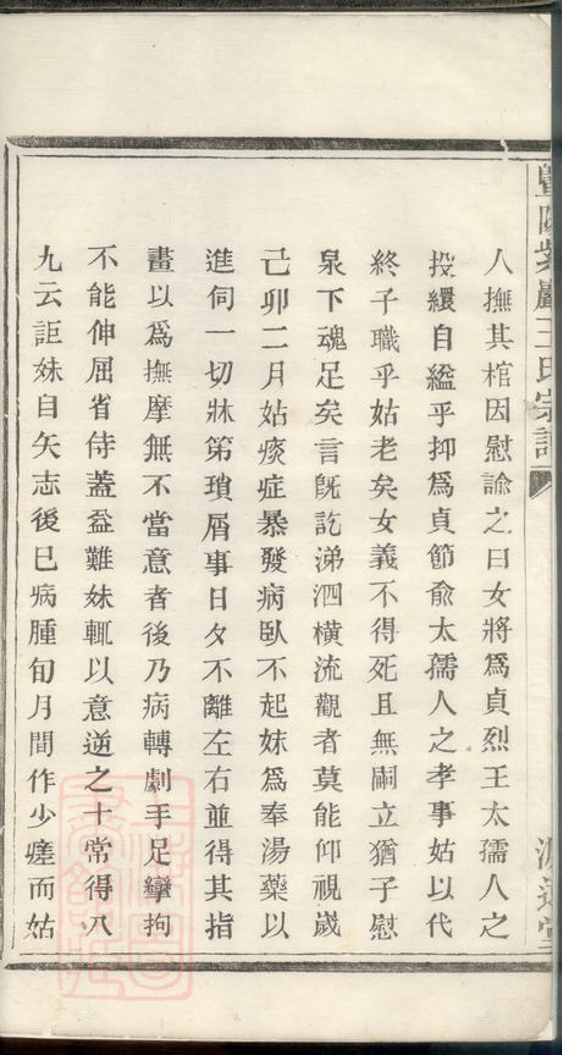 暨陽紫巖王氏宗譜
人撫其棺因慰諭之曰女將爲貞烈王太孺人之
投繯自縊乎抑爲貞節俞太孺人之孝事姑以代
終子職乎姑老矣女義不得死且無嗣立猶子慰
泉下魂足矣言旣訖涕泗橫流觀者莫能仰視歲
己卯二月姑痰症暴發病臥不起妹爲奉湯藥以
進伺一切牀笫瑣屑事日夕不離左右並得其指
畫以爲撫摩無不當意者後乃病轉劇手足攣拘
不能伸屈省侍蓋益難妹輒以意逆之十常得八
九云詎妹自矢志後巳病腫旬月間作少瘥而姑